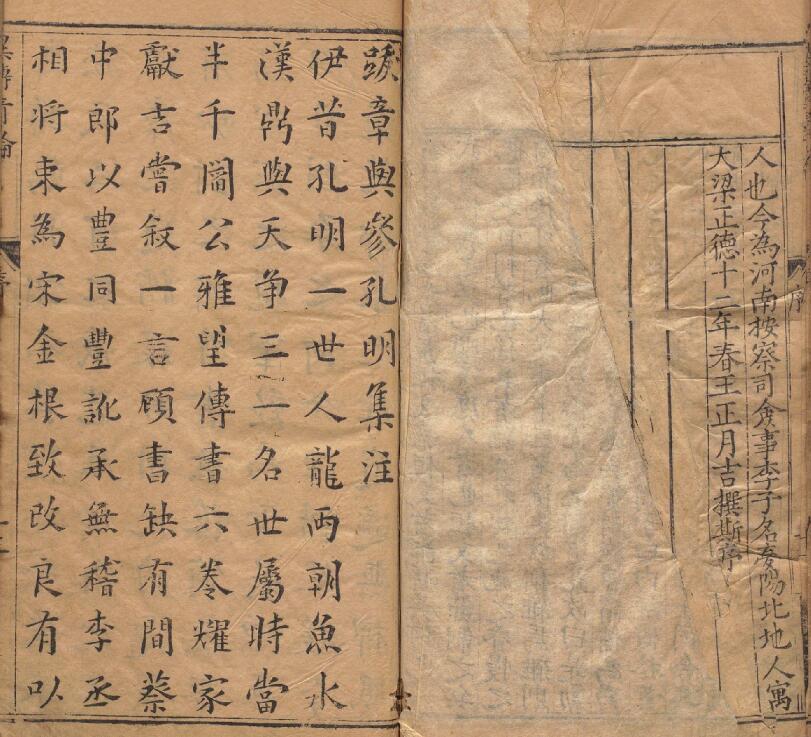 人也今為河南按察司僉事李子名夢陽北地人寓
大梁正德十二年春王正月吉撰斯序
序
跋章與參孔明集注
伊昔孔明一世人龍両朝魚水
漢鼎與天争三一名世屬時當
半千闓公雅望傳書六卷燿家
獻吉嘗叙一言顧書缺有間蔡
中郎以豊同豐訛承無稽李丞
相将東為宋金根致改良有以